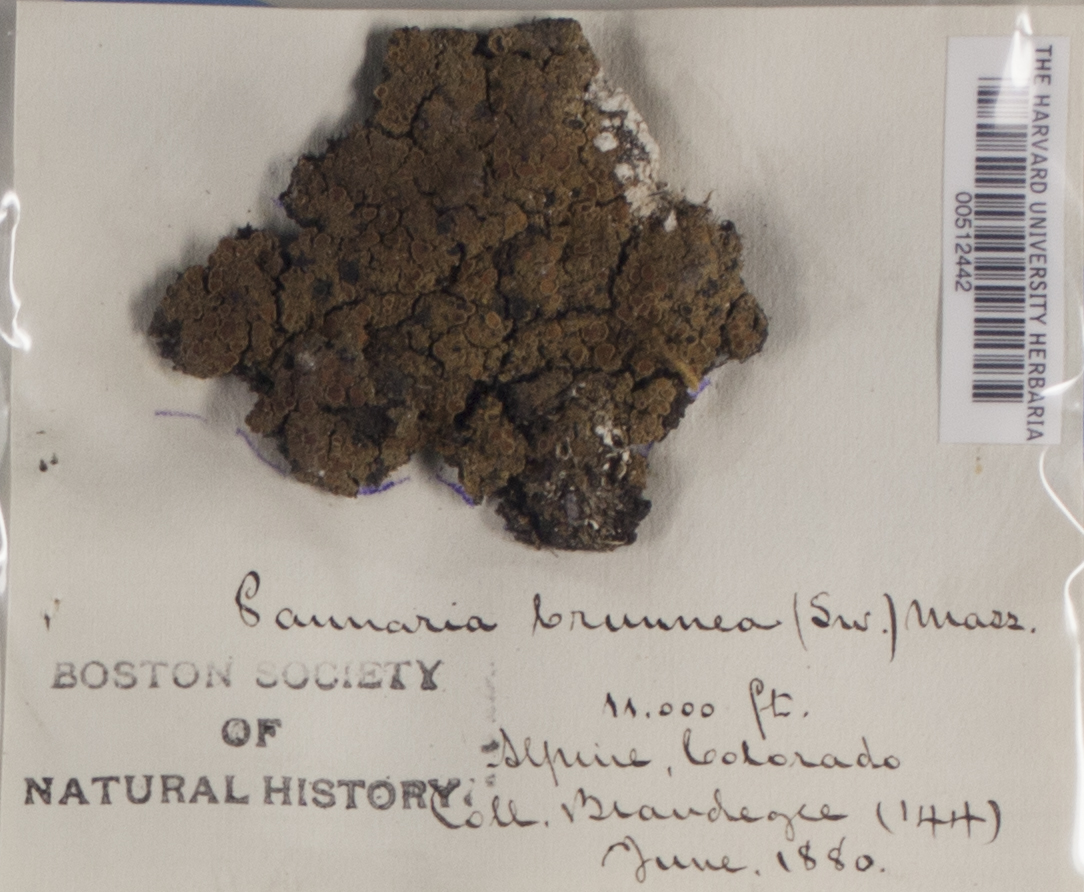 THE HARVARD UNIVERSITY HERBARIA
00512442
Pannaria brunnea (Sw.) Mass.
BOSTON SOCIETY
OF
NATURAL HISTORY.
11.000 ft.
Alpine, Colorado
Coll. Brandegee (144)
June. 1880.